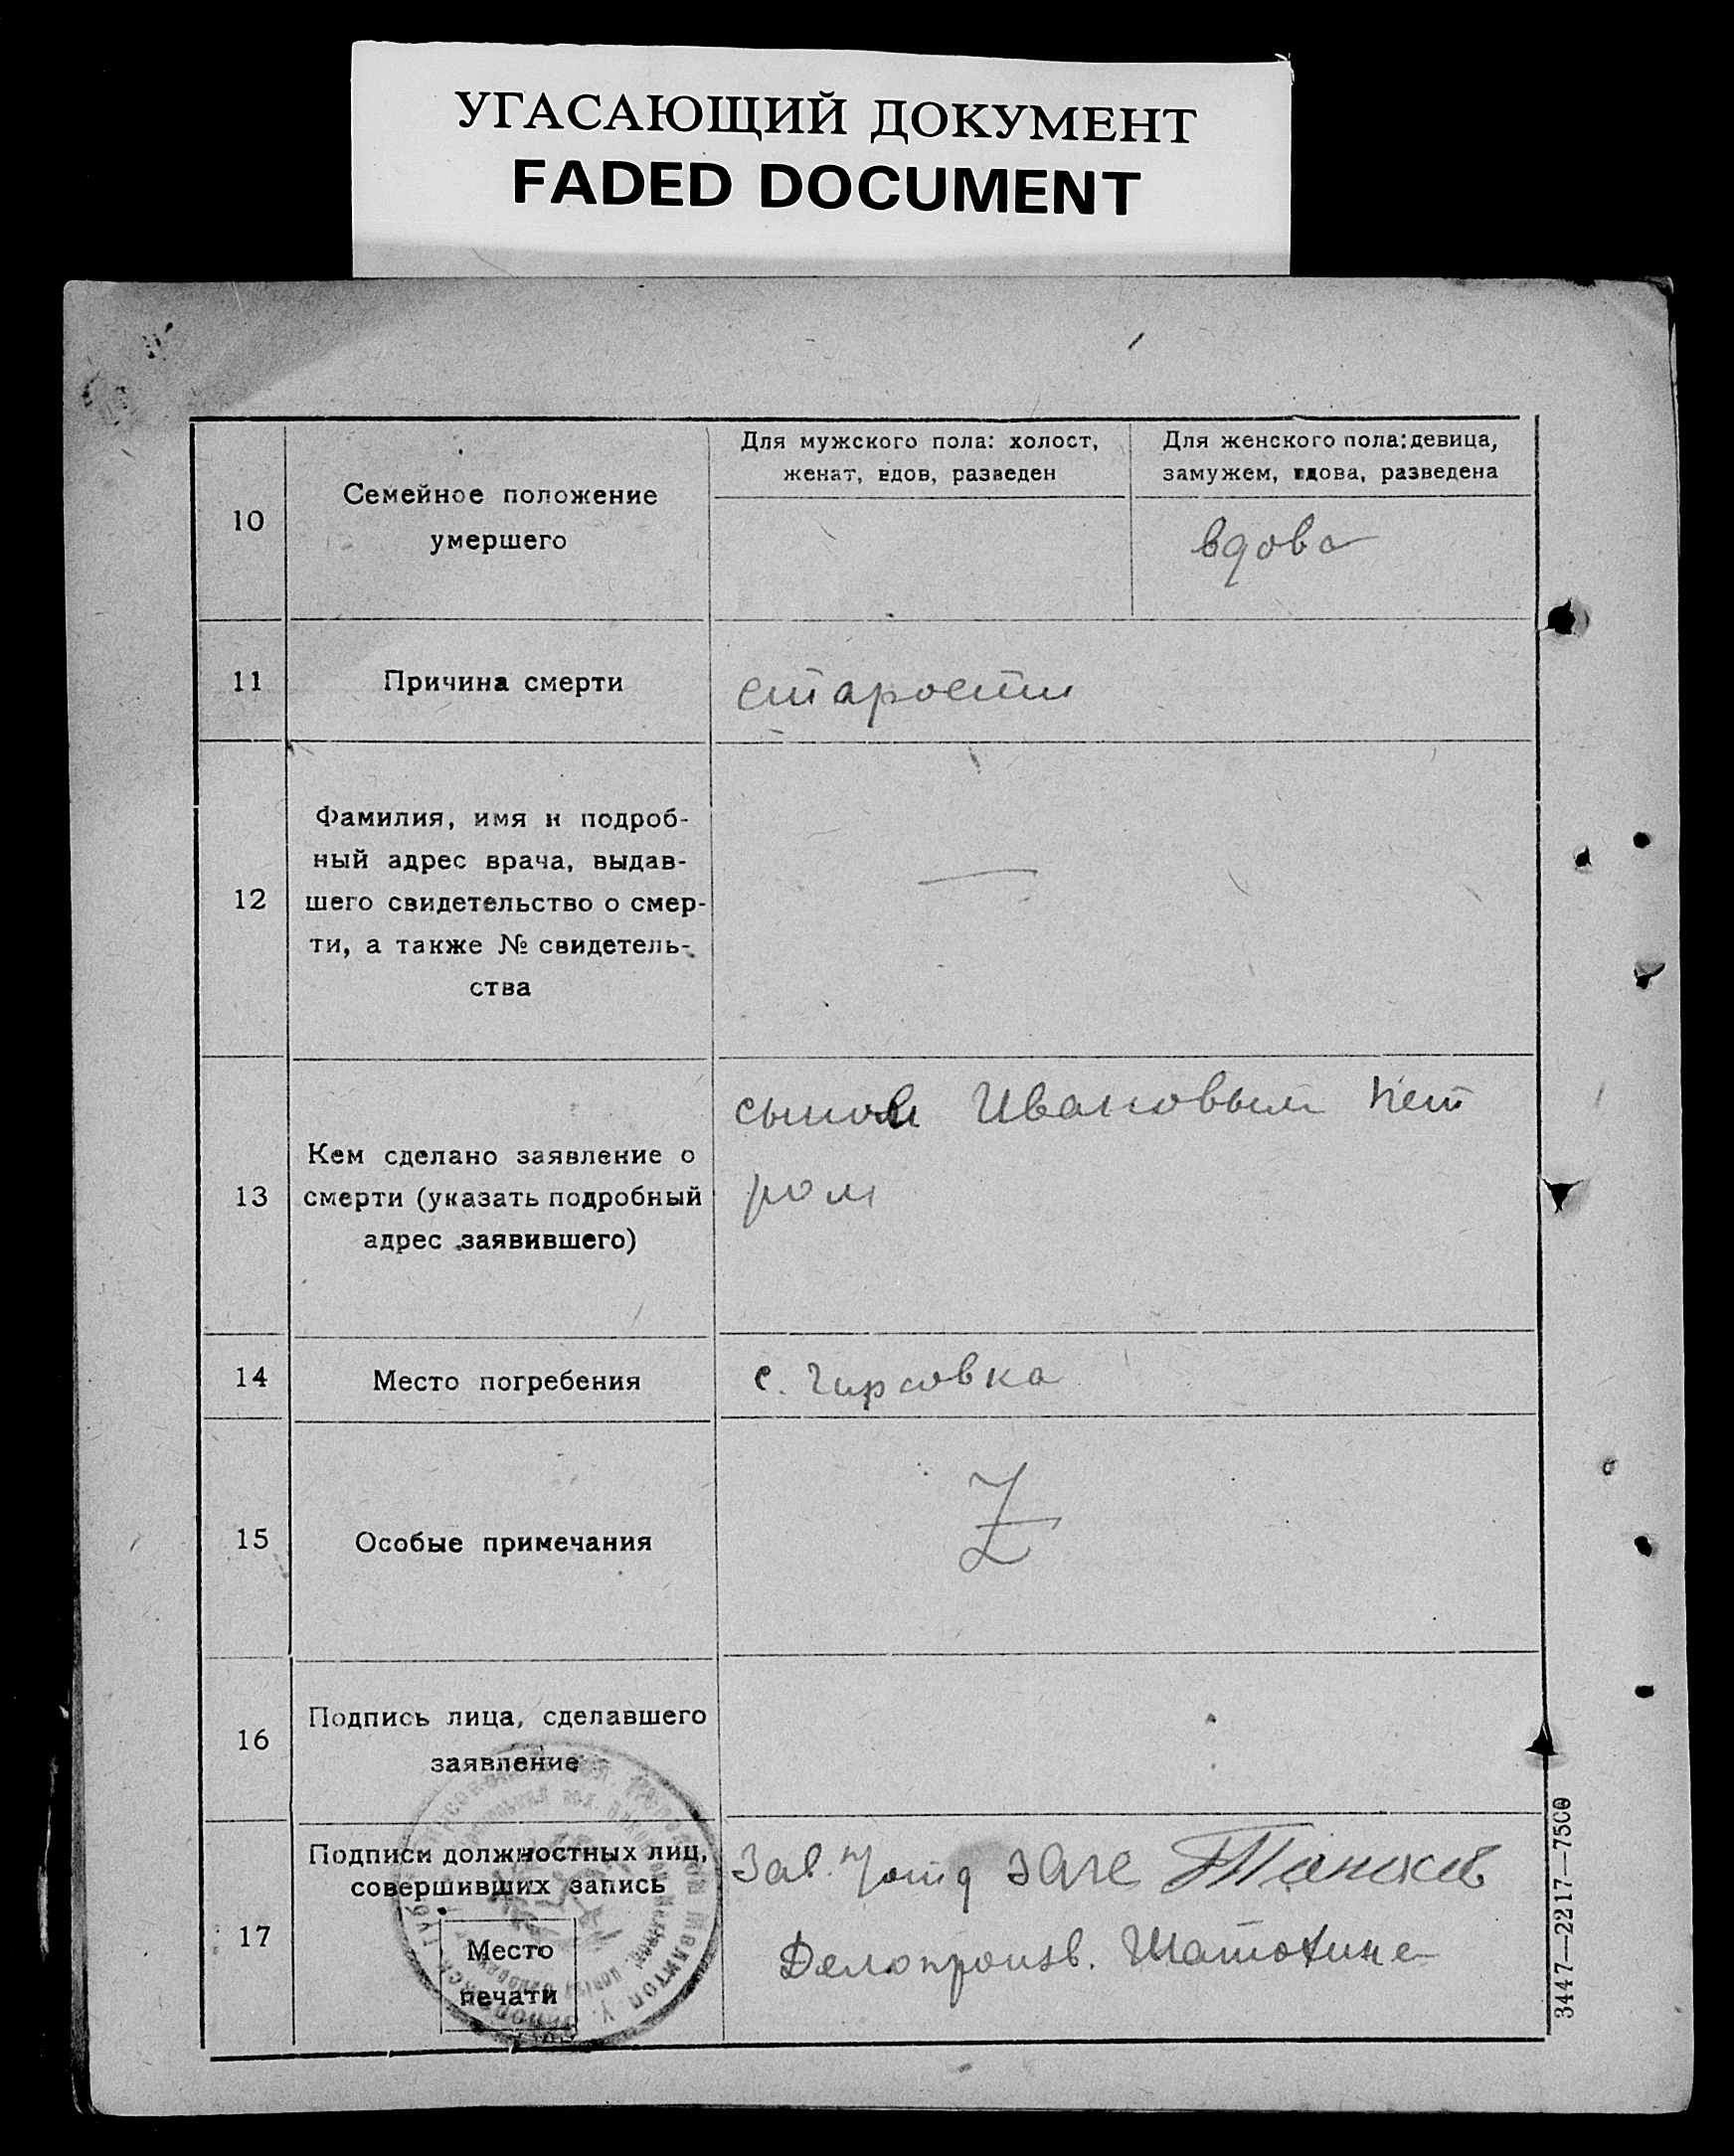 УГАСАЮЩИЙ ДОКУМЕНТ
FADED DOCUMENT
10
Семейное положение
умершего
Для мужского пола: холост,
женат, вдов, разведен
Для женского пола: девица,
замужем, вдова, разведена
вдова
11
Причина смерти
старости
12
Фамилия, имя и подроб-
ный адрес врача, выдав-
шего свидетельство о смер-
ти, а также № свидетель-
ства
—
13
Кем сделано заявление о
смерти (указать подробный
адрес заявившего)
сыном Ивановым Пет
ром
14
Место погребения
с.
15
Особые примечания
Z
16
Подпись лица, сделавшего
заявление
17
Подписи должностных лиц,
совершивших запись
Место
печати
Зав.
Делопроизв.
3447—2217—7500